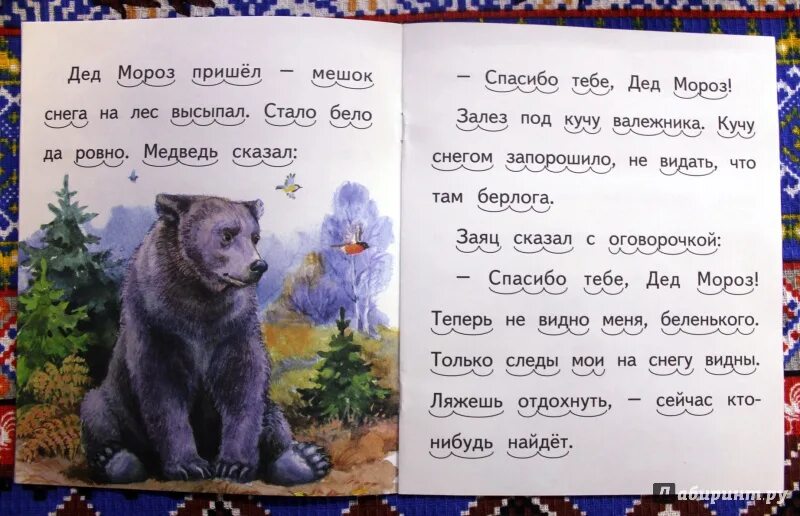 Дед Мороз пришёл – мешок
снега на лес высыпал. Стало бело
да ровно. Медведь сказал:
– Спасибо тебе, Дед Мороз!
Залез под кучу валежника. Кучу
снегом запорошило, не видать, что
там берлога.
Заяц сказал с оговорочкой:
– Спасибо тебе, Дед Мороз!
Теперь не видно меня, беленького.
Только следы мои на снегу видны.
Ляжешь отдохнуть, – сейчас кто-
нибудь найдёт.
Лабиринт.ру